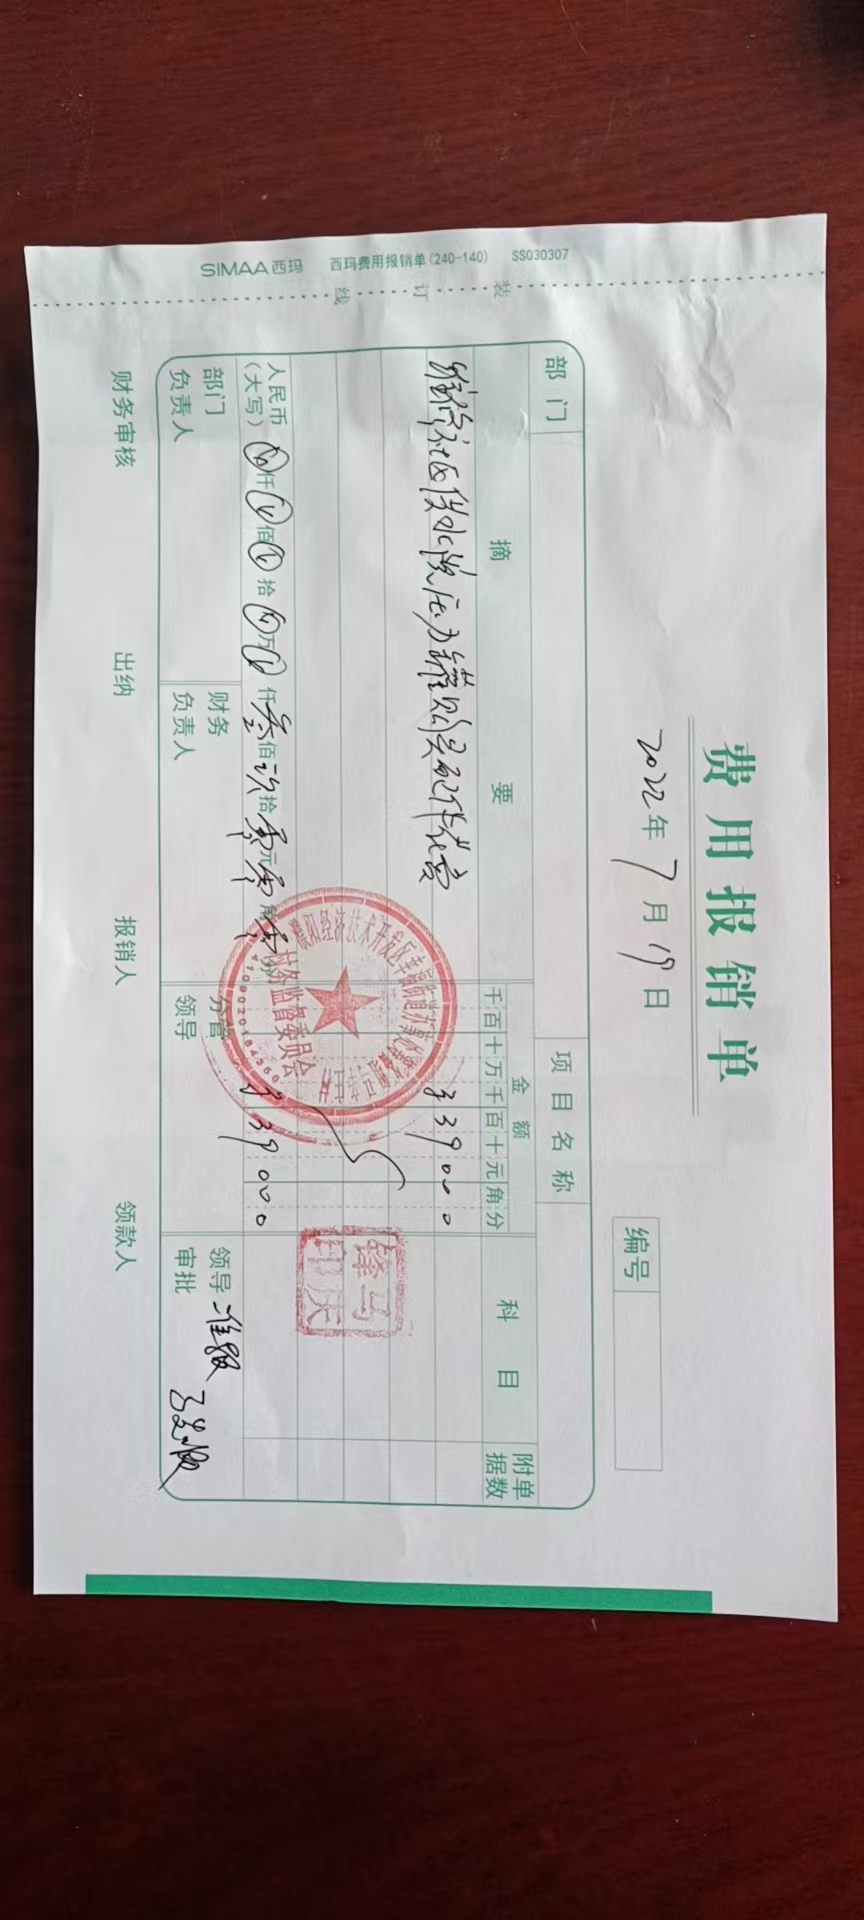 费用报销单
2022年7月19日
编号
部门
项目名称
摘要
金额
科目
附单据数
千百十万千百十元角分
维修社区供水沉压力罐购买配件花费
¥39000
人民币(大写)
仟 佰 拾 万 仟叁佰 玖拾零元零角零分
¥39000
部门负责人
财务负责人
分管领导
领导审批
准报
财务审核
出纳
报销人
领款人
村务监督委员会
马庆
印
SIMAA西玛 西玛费用报销单(240-140) SS030307
装订线